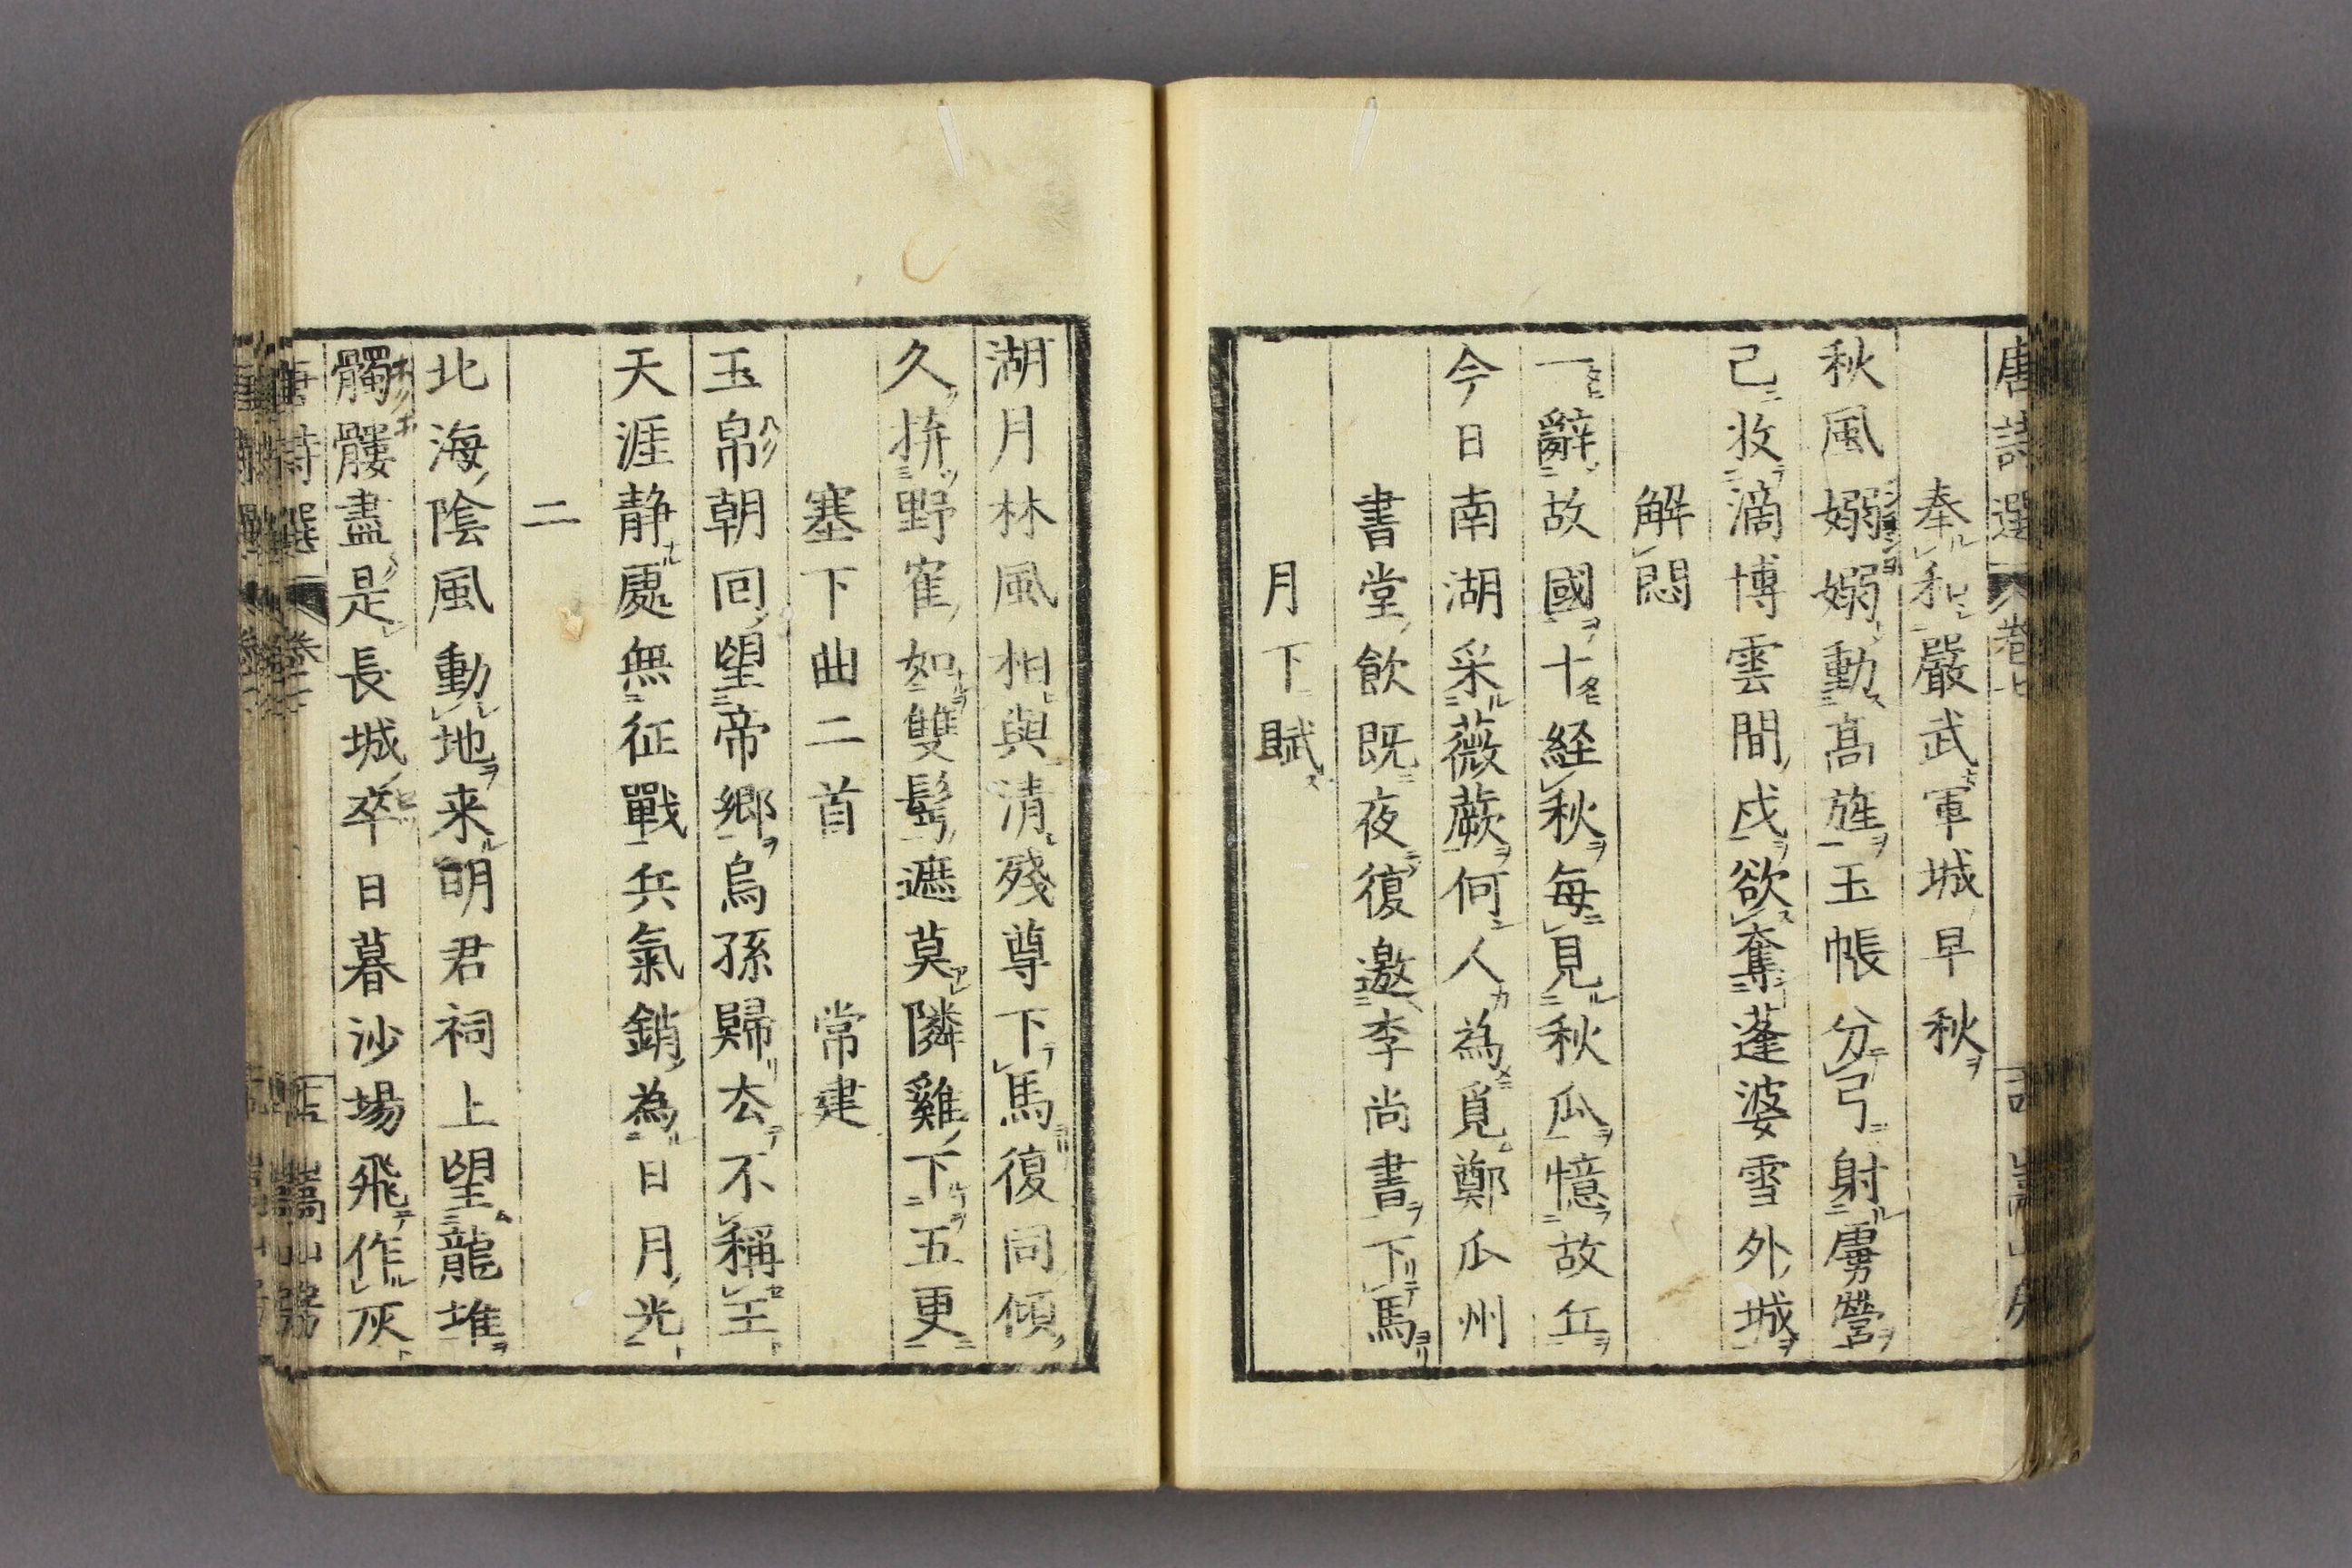 唐詩選 巻七
奉和嚴武軍城早秋
秋風嫋嫋動髙旌玉帳分弓射虜營
已收滴博雲間戍欲奪蓬婆雪外城
解悶
一辭故國十経秋每見秋瓜憶故丘
今日南湖采薇蕨何人為覓鄭瓜州
書堂飲既夜復邀李尚書下馬
月下賦
湖月林風相與清殘尊下馬復同傾
久拚野寉如雙鬂遮莫隣雞下五更
塞下曲二首 常建
玉帛朝回望帝鄉烏孫歸去不稱王
天涯静處無征戰兵氣銷為日月光
二
北海陰風動地来明君祠上望龍堆
髑髏盡是長城卒日暮沙場飛作灰
唐詩選 巻七